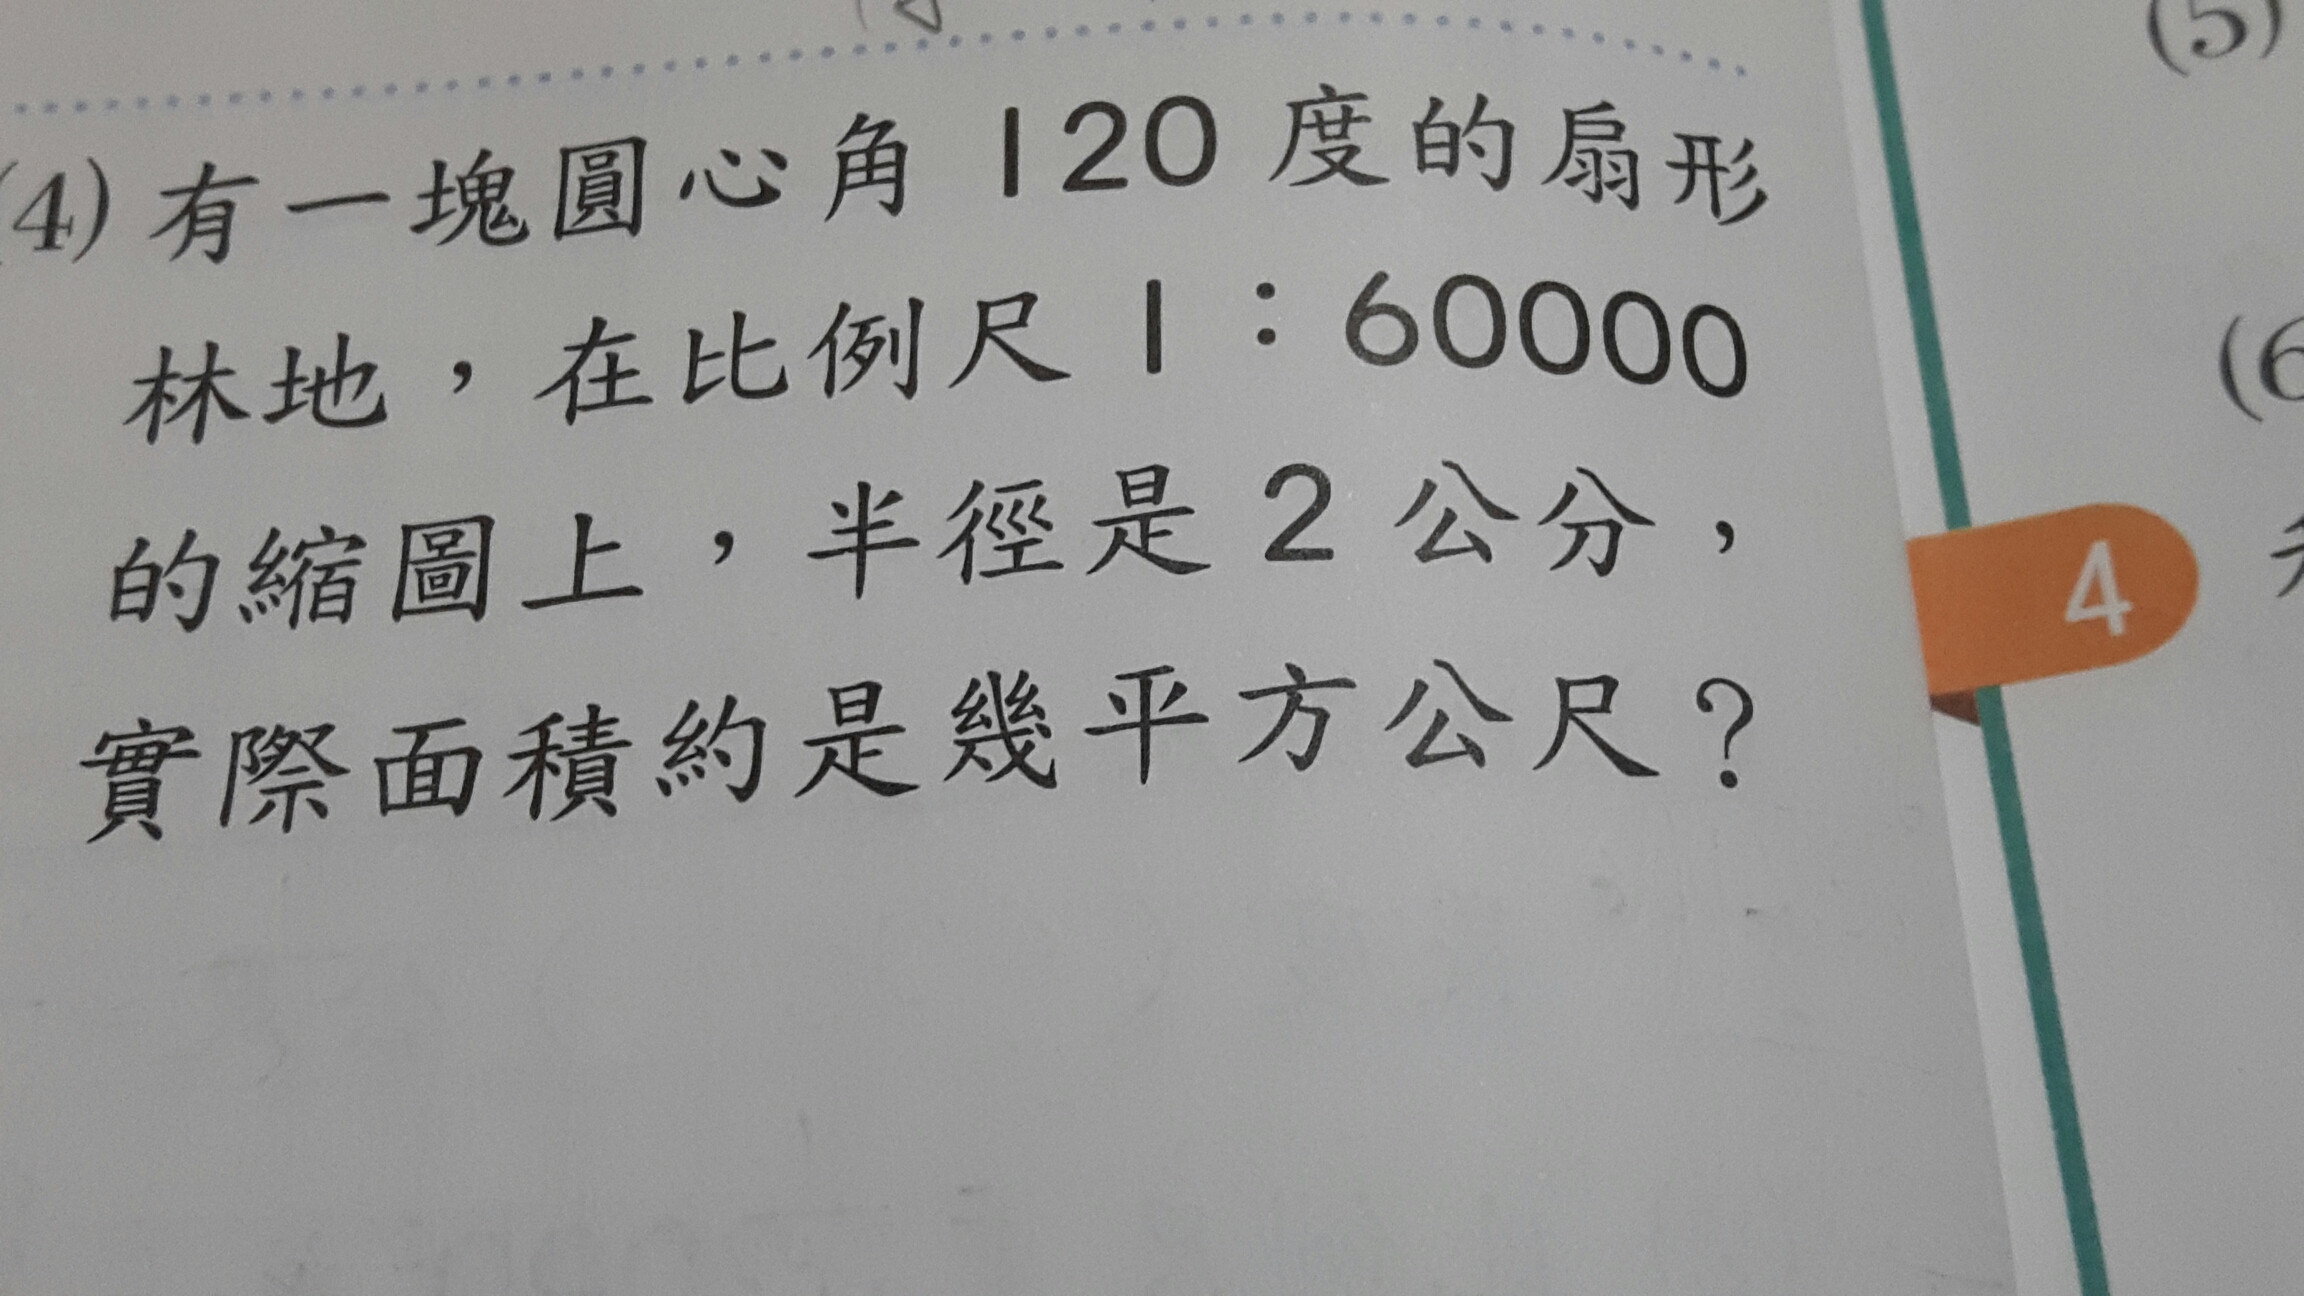 (4) 有一塊圓心角 120 度的扇形
林地，在比例尺 1：60000
的縮圖上，半徑是 2 公分，
實際面積約是幾平方公尺？
4
(5)
(6